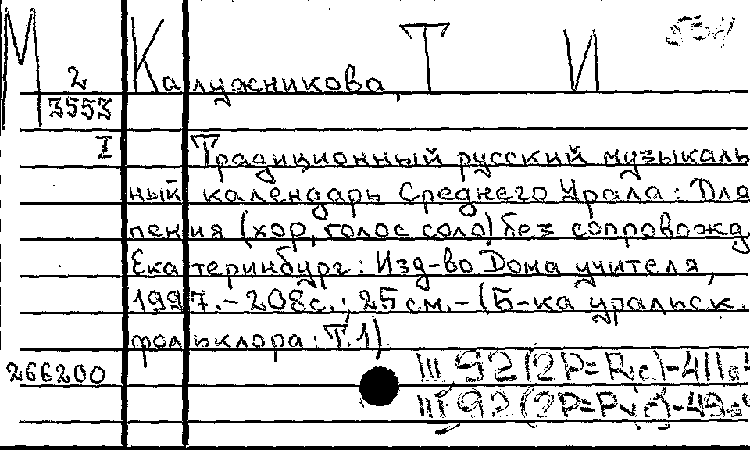 М Калужникова, Т И
2
3553
I Традиционный русский музыкаль
ный календарь Среднего Урала: Для
пения (хор, голос соло) без сопровожд.
Екатеринбург: Изд-во Дома учителя,
1997. - 208с.; 25 см. - (Б-ка уральск.
фольклора: Т.1)
266200
Щ 92 (2Р=Рус)-411
Щ 92 (2Р=Рус)-49